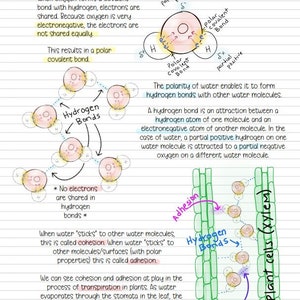 bond with hydrogen, electrons are
shared. Because oxygen is very
electronegative, the electrons are
not shared equally.
This results in a polar
covalent bond.
δ-
Polar
Covalent
Bond
H
H
δ+
Polar
Covalent
Bond
δ+
partial
positive
The polarity of water enables it to form
hydrogen bonds with other water molecules.
A hydrogen bond is an attraction between a
hydrogen atom of one molecule and an
electronegative atom of another molecule. In the
case of water, a partial positive hydrogen on one
water molecule is attracted to a partial negative
oxygen on a different water molecule.
Hydrogen
Bonds
* No electrons
are shared in
hydrogen
bonds *
When water "sticks" to other water molecules,
this is called cohesion. When water "sticks" to
other molecules/surfaces (with polar
properties) this is called adhesion.
We can see cohesion and adhesion at play in the
process of transpiration in plants. As water
evaporates through the stomata in the leaf,
Adhesion
Hydrogen
Bonds
plant cells (xylem)